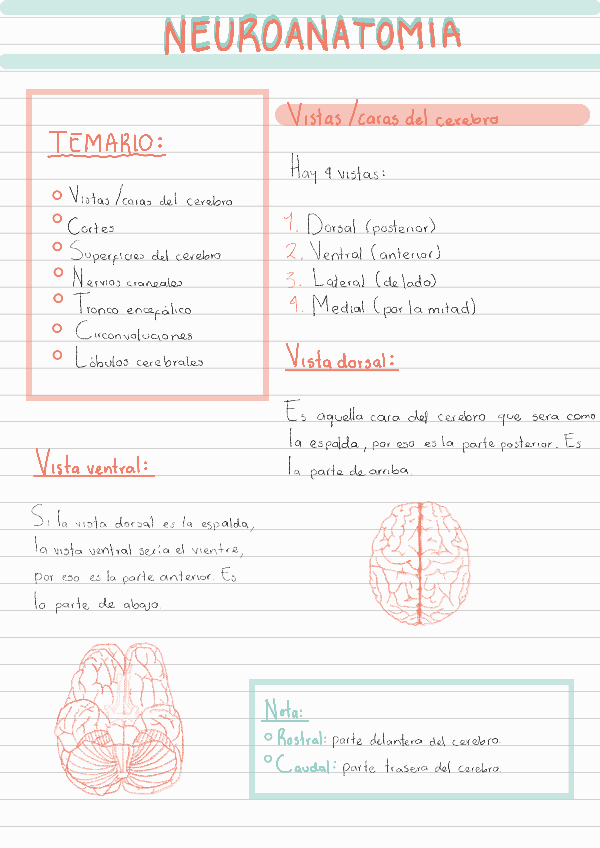 NEUROANATOMIA
TEMARIO:
Vistas/caras del cerebro
Cortes
Superficies del cerebro
Nervios craneales
Tronco encefálico
Circonvoluciones
Lóbulos cerebrales
Vistas/caras del cerebro
Hay 4 vistas:
1. Dorsal (posterior)
2. Ventral (anterior)
3. Lateral (de lado)
4. Medial (por la mitad)
Vista dorsal:
Es aquella cara del cerebro que sera como
la espalda, por eso es la parte posterior. Es
la parte de arriba.
Vista ventral:
Si la vista dorsal es la espalda,
la vista ventral sería el vientre,
por eso es la parte anterior. Es
la parte de abajo.
Nota:
Rostral: parte delantera del cerebro.
Caudal: parte trasera del cerebro.